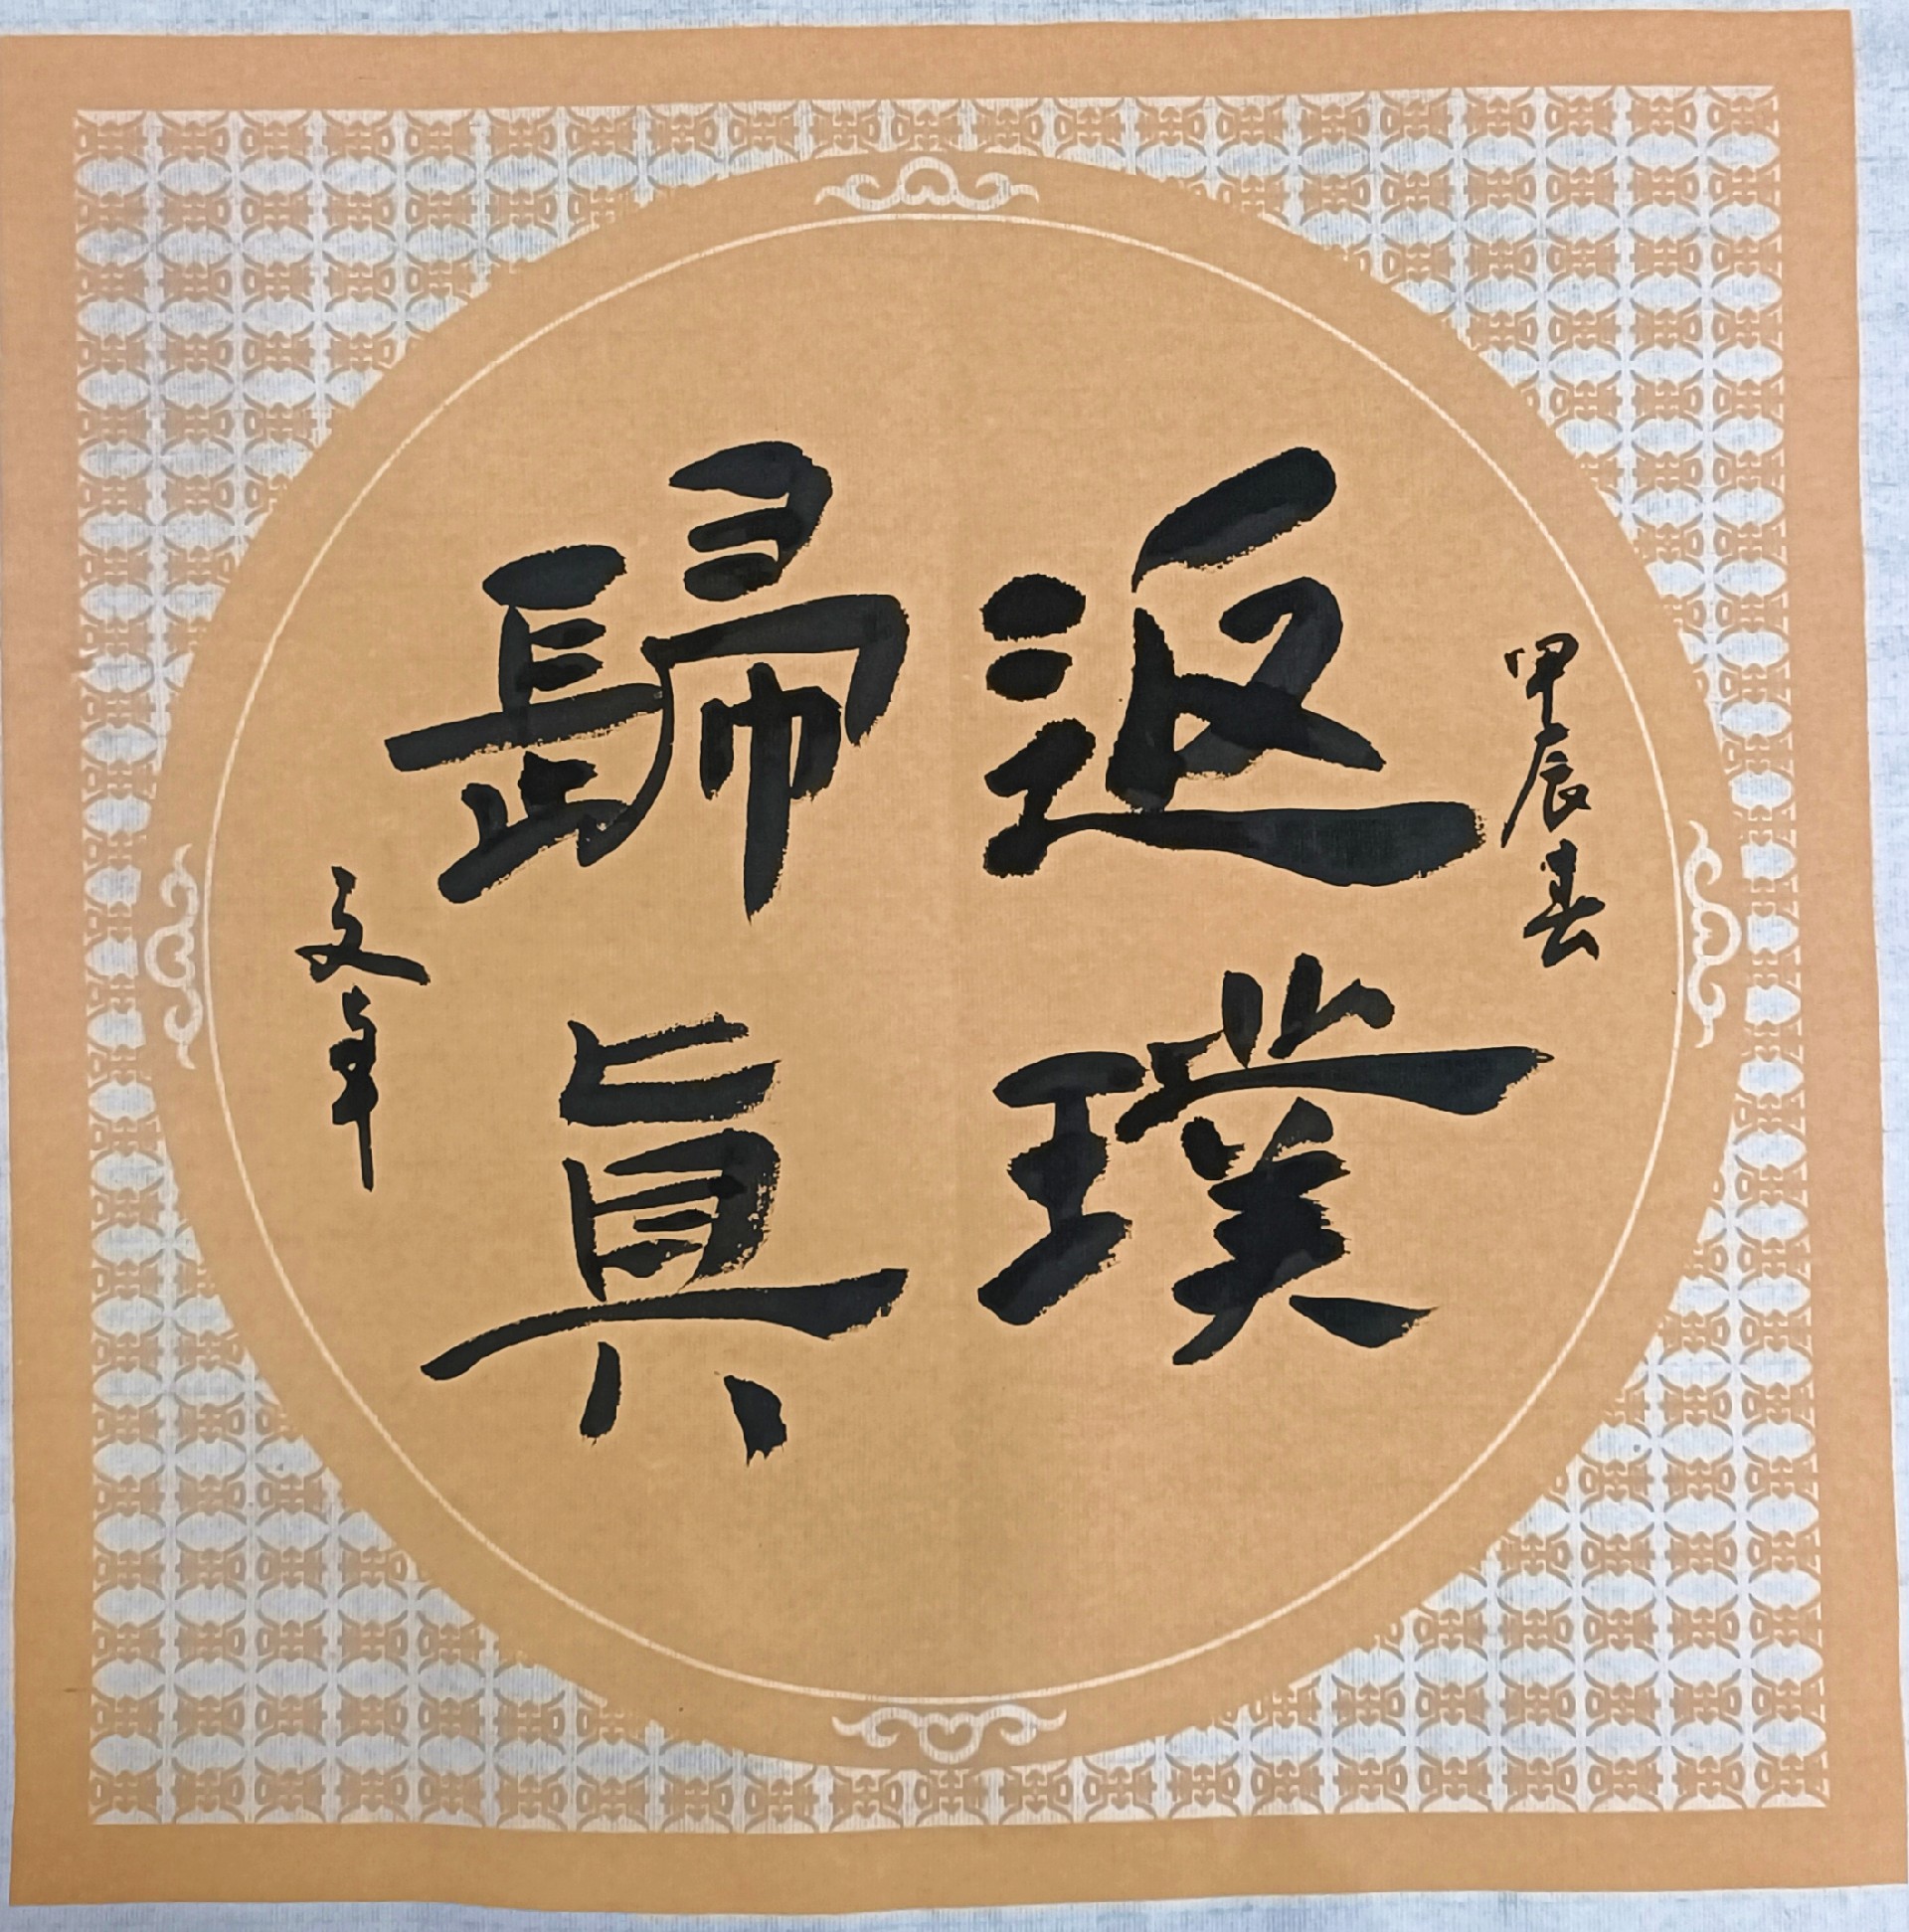 甲辰春
返璞
歸真
文章